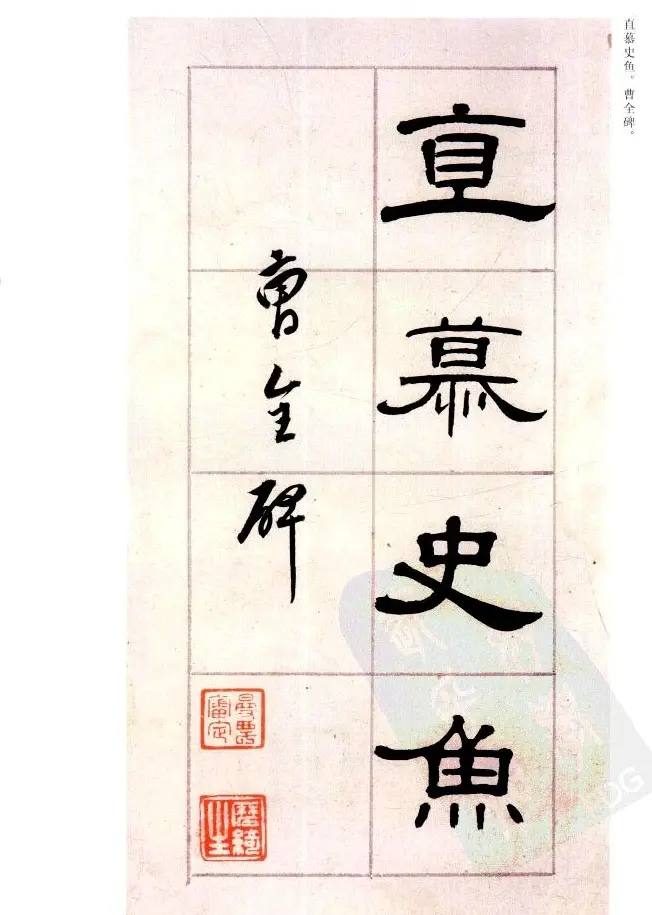 直慕史鱼。曹全碑。
直慕史魚
曹全碑